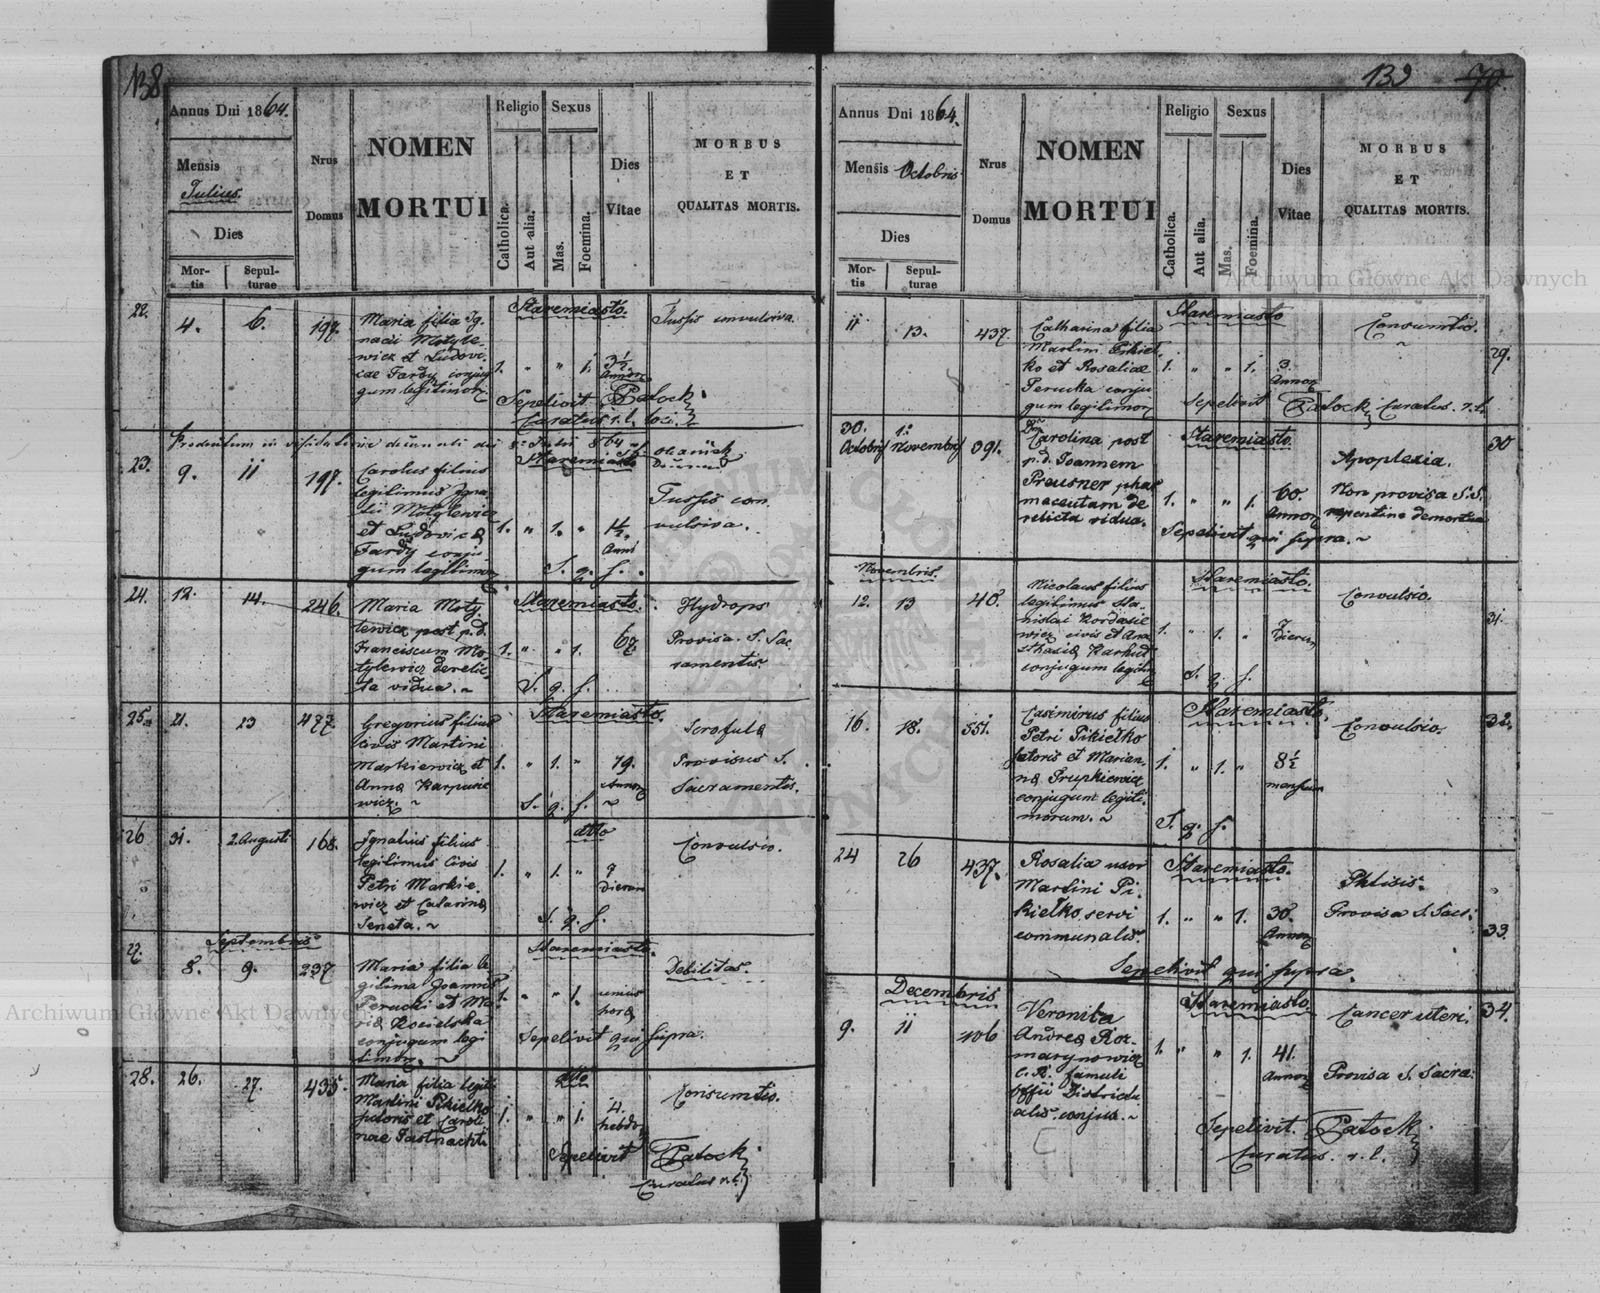 138
Annus Dni 1864.
Mensis
Julius.
Dies
Mor-
tis
Sepul-
turae
Nrus
Domus
NOMEN
MORTUI
Religio
Catholica.
Aut alia.
Sexus
Mas.
Foemina.
Dies
Vitae
MORBUS
ET
QUALITAS MORTIS.
22.
4. 6. 197.
Maria filia Ig-
nacii Motyle-
wicz et Ludovi-
cae Fardy conju
gum legitimor.
Staremiasto.
1. " " 1.
3½
Annor.
Tussis convulsiva.
Sepelivit Patock
Curatus r. l. loci.
23.
9. 11 197.
Carolus filius
legitimus Igna
tii Motylewicz
et Ludovica
Fardy conju
gum legitimor
Staremiasto
1. " 1. "
1½
Anni
Tussis con
vulsiva.
S. q. s.
24.
12. 14. 246.
Maria Moty
lewicz post p. d.
Franciscum Mo
tylewicz derelic
ta vidua.
Staremiasto.
1. " " 1.
67.
Hydrops
Provisa S. Sac
ramentis.
S. q. s.
25.
21. 23 477.
Gregorius filius
civis Martini
Markiewicz et
Anna Karpusie
wicz.
Staremiasto.
1. " 1. "
19.
Annor
Scrofula
Provisus S.
Sacramentis.
S. q. s.
26
31. 2. Augusti 168.
Ignatius filius
legitimus Civis
Petri Markie.
wicz et Catarina
Seneta.
dtto
1. " 1. "
9
Dierum
Convulsio.
S. q. s.
27.
Septembris
8. 9. 237
Maria filia le
gitima Joannis
Perucki et Ma
ria Kocielska
conjugum legi
timor.
Staremiasto.
1. " " 1.
unius
hora
Debilitas.
Sepelivit qui supra.
28.
26. 27. 435.
Maria filia legit.
Martini Pikielko
sutoris et Caroli
nae Fastnacht
dtto
1. " " 1.
4.
hebdo.
Consumtio.
Sepelivit Patock
Curatus r. l.
139 70.
Annus Dni 1864.
Mensis Octobris
Dies
Mor-
tis
Sepul-
turae
Nrus
Domus
NOMEN
MORTUI
Religio
Catholica.
Aut alia.
Sexus
Mas.
Foemina.
Dies
Vitae
MORBUS
ET
QUALITAS MORTIS.
11 13. 437.
Catharina filia
Martini Pikiel
ko et Rosaliae
Perucka conju
gum legitimor
Staremiasto
1. " " 1.
3.
Annor
Consumtio.
29.
Sepelivit Patock Curatus r. l.
30. 1.
Octobris Novembris 091.
Carolina post
p. d. Joannem
Preusner phar
maceutam de
relicta vidua.
Staremiasto.
1. " " 1.
60.
Annor
Apoplexia.
Non provisa S. S.
repentine demortua
30
Sepelivit qui supra.
Novembris.
12. 13 40.
Nicolaus filius
legitimus Sta-
nislai Kordasie
wicz civis et Ana
sthasia Karkut
conjugum legitim
Staremiasto.
1. " 1. "
7
Dierum
Convulsio.
31.
S. q. s.
16. 18. 551.
Casimirus filius
Petri Pikielko
sutoris et Marian-
na Prupkiewicz
conjugum legiti.
morum.
Staremiasto.
1. " 1. "
8½
mensium
Convulsio.
32.
S. q. s.
24 26 437.
Rosalia uxor
Martini Pi.
kielko servi
communalis.
Staremiasto.
1. " " 1.
30.
Annor
Phtisis.
Provisa S. Sacr.
33.
Sepelivit qui supra.
Decembris
9. 11 406
Veronica
Andrea Roz-
marynowicz
C. R. famuli
offii Districtu
alis conjux.
Staremiasto
1. " " 1.
41.
Annor
Cancer uteri.
Provisa S. Sacra.
34.
Sepelivit. Patock
Curatus. r. l.
Archiwum Główne Akt Dawnych
Archiwum Główne Akt Dawnych